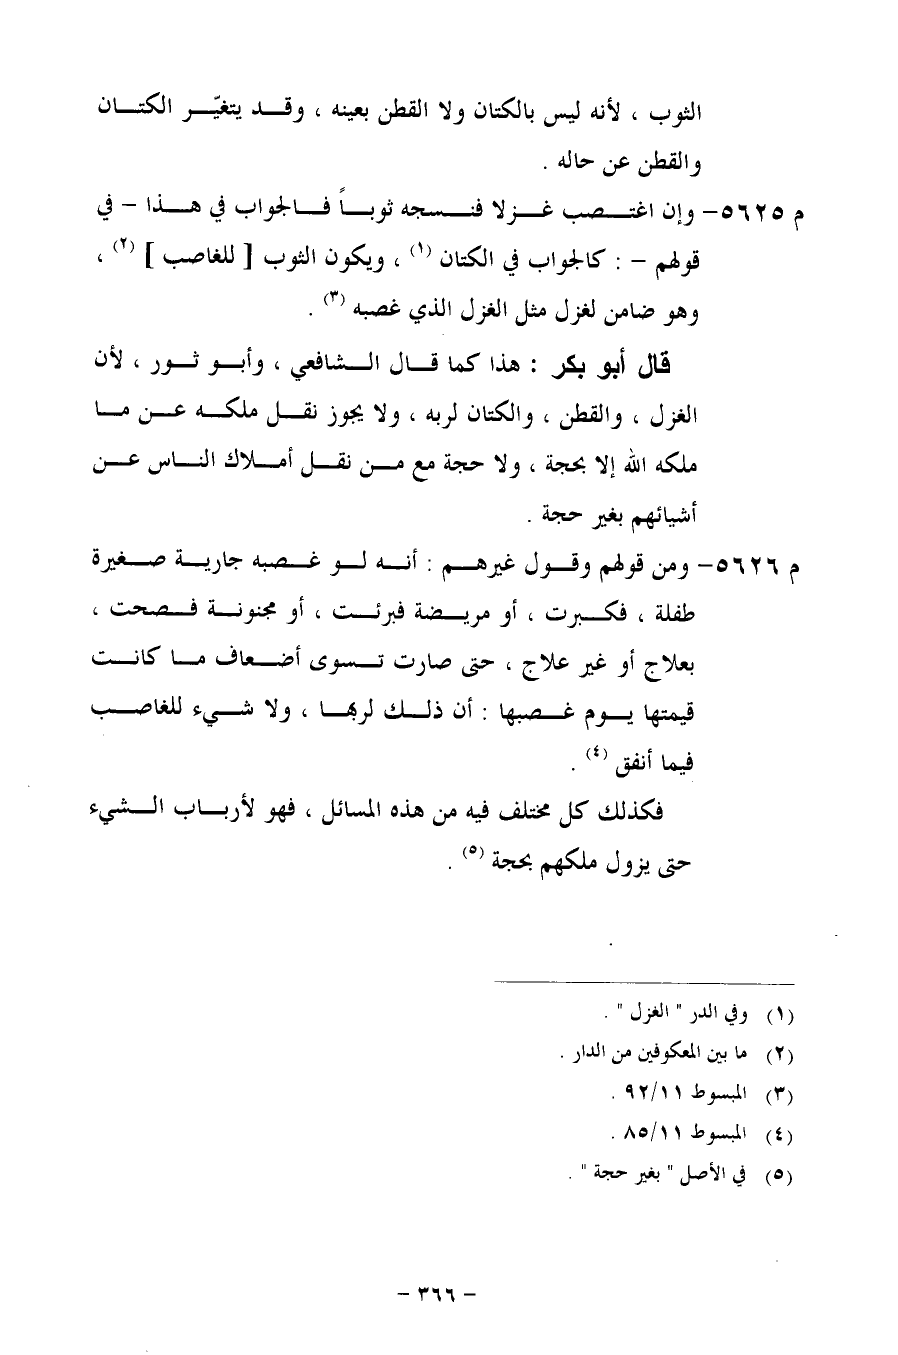 الثوب ، لأنه ليس بالكتان ولا القطن بعينه ، وقد يتغيّر الكتان
والقطن عن حاله .
م ٥٦٢٥– وإن اغتصب غزلا فنسجه ثوباً فالجواب في هذا – في
قولهم – : كالجواب في الكتان (١) ، ويكون الثوب [ للغاصب ] (٢) ،
وهو ضامن لغزل مثل الغزل الذي غصبه (٣) .
قال أبو بكر : هذا كما قال الشافعي ، وأبو ثور ، لأن
الغزل ، والقطن ، والكتان لربه ، ولا يجوز نقل ملكه عن ما
ملكه الله إلا بحجة ، ولا حجة مع من نقل أملاك الناس عن
أشيائهم بغير حجة .
م ٥٦٢٦– ومن قولهم وقول غيرهم : أنه لو غصبه جارية صغيرة
طفلة ، فكبرت ، أو مريضة فبرئت ، أو مجنونة فصحت ،
بعلاج أو غير علاج ، حتى صارت تسوى أضعاف ما كانت
قيمتها يوم غصبها : أن ذلك لربها ، ولا شيء للغاصب
فيما أنفق (٤) .
فكذلك كل مختلف فيه من هذه المسائل ، فهو لأرباب الشيء
حتى يزول ملكهم بحجة (٥) .
(١) وفي الدر " الغزل " .
(٢) ما بين المعكوفين من الدار .
(٣) المبسوط ٩٢/١١ .
(٤) المبسوط ٨٥/١١ .
(٥) في الأصل " بغير حجة " .
– ٣٦٦ –